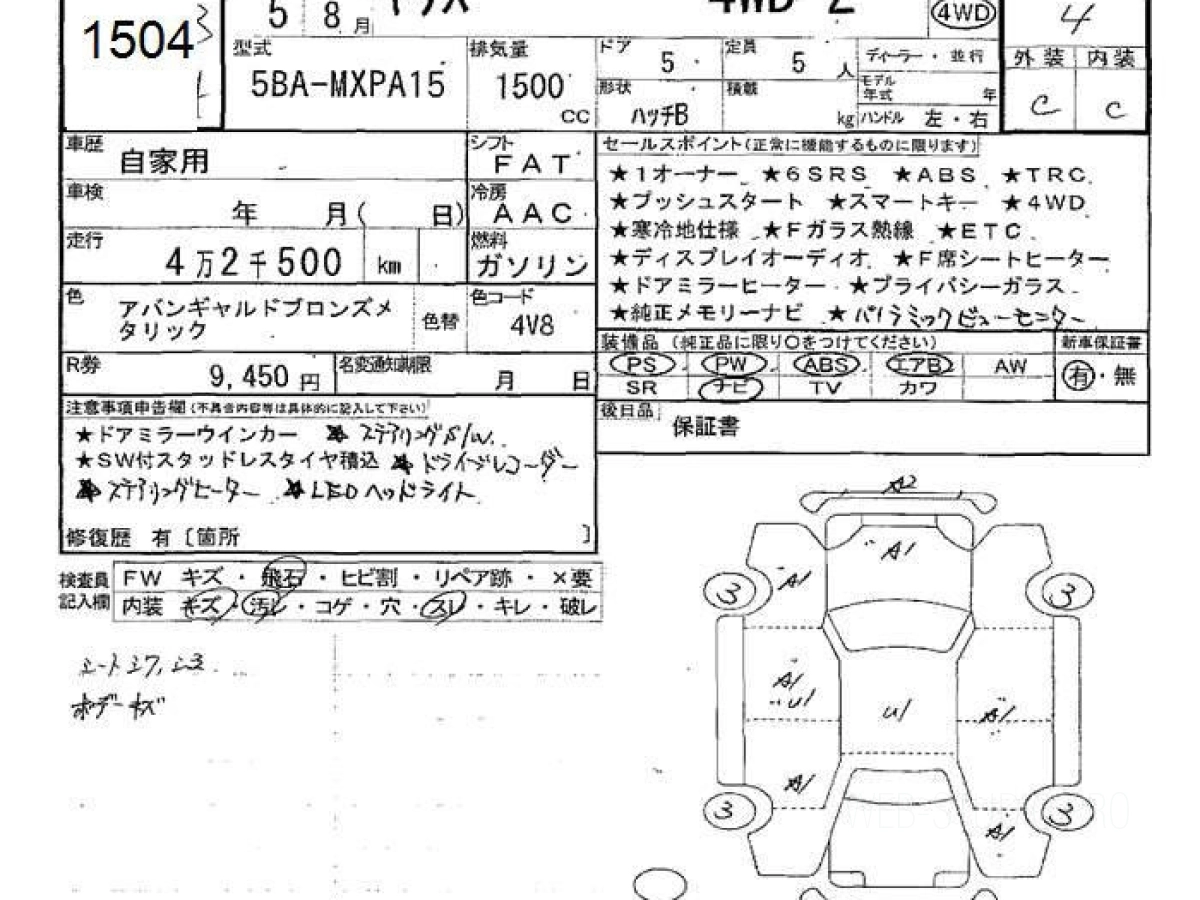 1504
5 8月 4WD Z 4WD 4
型式 5BA-MXPA15
排気量 1500 CC
ドア 5
定員 5 人
ディーラー・並行
形状 ハッチB
積載 kg
モデル年式 年
ハンドル 左・右
外装 内装
C C
車歴 自家用
シフト FAT
車検 年 月( 日)
冷房 AAC
走行 4万2千500 km
燃料 ガソリン
色 アバンギャルドブロンズメ
タリック
色替
色コード 4V8
R券 9,450円
名変通知期限 月 日
セールスポイント(正常に機能するものに限ります)
★1オーナー ★6SRS ★ABS ★TRC
★プッシュスタート ★スマートキー ★4WD
★寒冷地仕様 ★Fガラス熱線 ★ETC
★ディスプレイオーディオ ★F席シートヒーター
★ドアミラーヒーター ★プライバシーガラス
★純正メモリーナビ ★パノラミックビューモニター
装備品 (純正品に限り○をつけてください)
新車保証書
PS PW ABS エアB AW
SR ナビ TV カワ
有・無
後日品 保証書
注意事項申告欄(不具合内容等は具体的に記入して下さい)
★ドアミラーウインカー ★ステアリングS/W.
★SW付スタッドレスタイヤ積込 ★ドライブレコーダー
★ステアリングヒーター ★LEDヘッドライト
修復歴 有〔箇所 〕
検査員記入欄
FW キズ・飛石・ヒビ割・リペア跡・×要
内装 キズ・汚レ・コゲ・穴・スレ・キレ・破レ
シート
ボデーキズ
A2
A1
A1
3 3
A1
U1
U1
A1
A1
3 3
A1